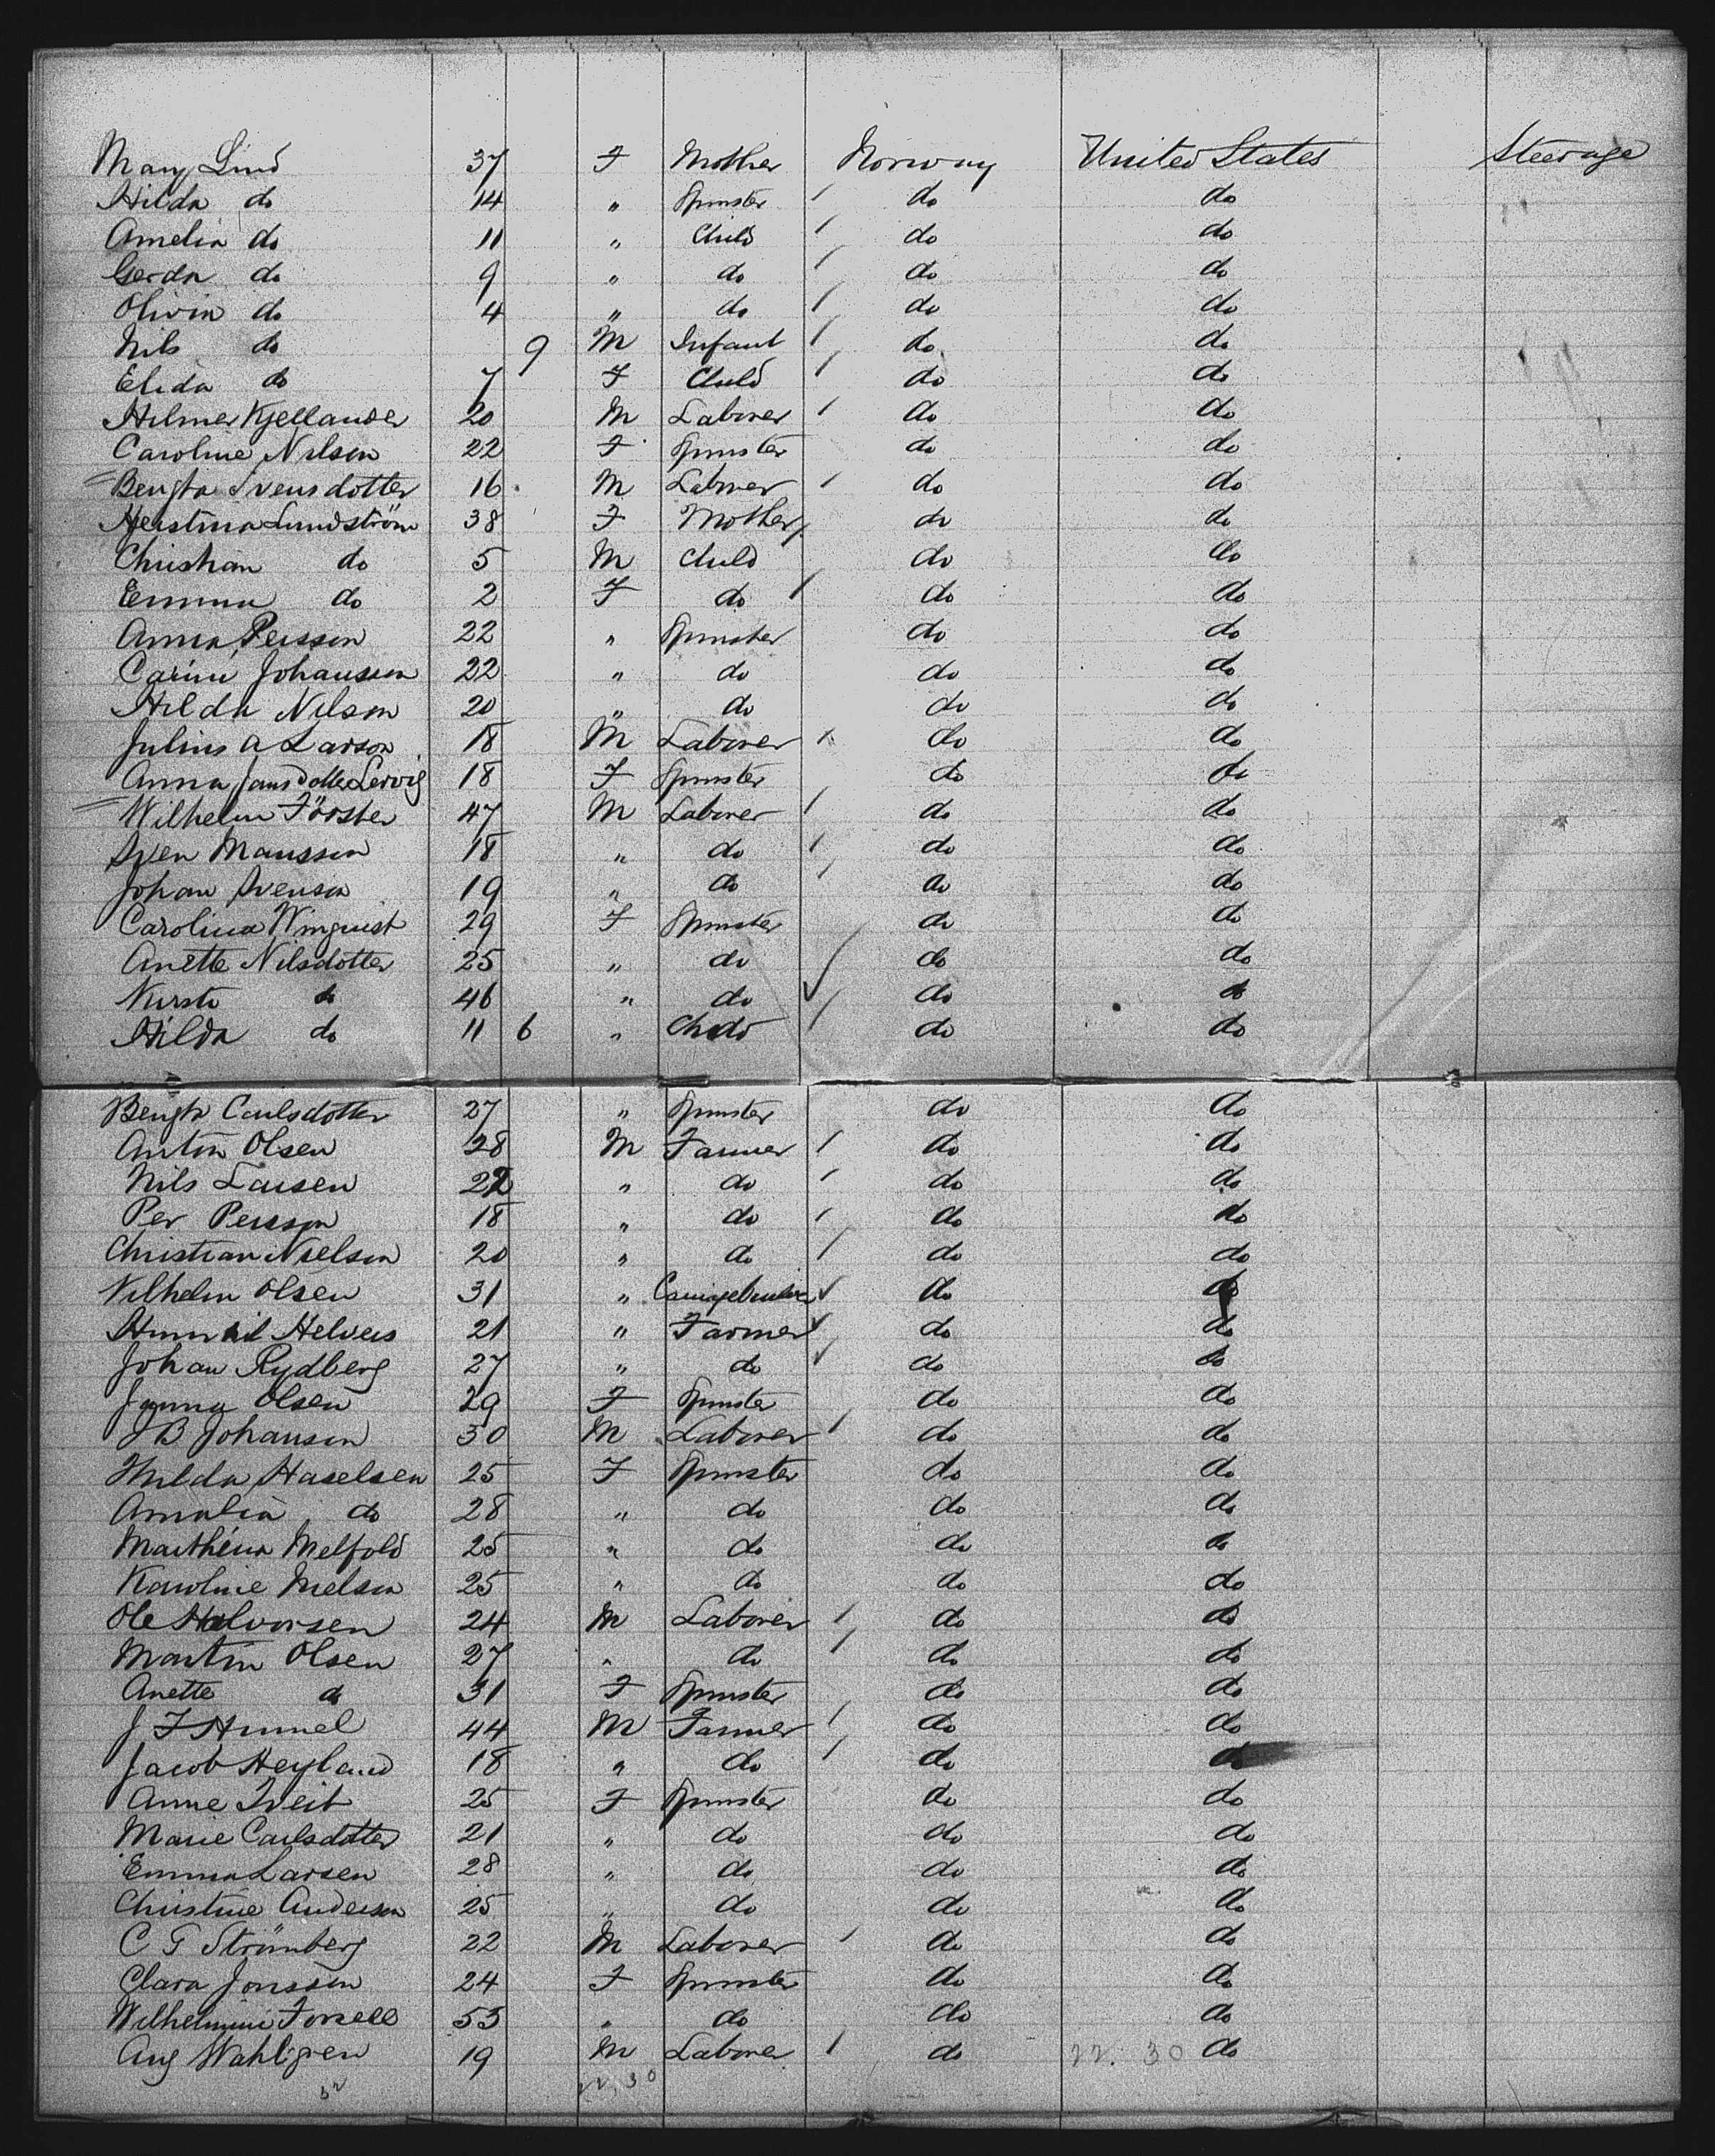 Mary Lind 37 F Mother Norway United States Steerage
Hilda do 14 " Spinster do do
Amelia do 11 " Child do do
Gerda do 9 " do do do
Olivia do 4 " do do do
Nils do 9 M Infant do do
Elida do 7 F Child do do
Hilmer Kjellander 20 M Laborer do do
Caroline Nilson 22 F Spinster do do
Bengta Svensdotter 16 M Laborer do do
Kjerstina Lundström 38 F Mother do do
Christian do 5 M Child do do
Emma do 2 F do do do
Anna Persson 22 " Spinster do do
Carini Johansson 22 " do do do
Hilda Nilson 20 " do do do
Julius A Larson 18 M Laborer do do
Anna Jansdotter 18 F Spinster do do
Wilhelm Förster 47 M Laborer do do
Sven Mansson 18 " do do do
Johan Svenson 19 " do do do
Carolina Winquist 29 F Spinster do do
Anette Nilsdotter 25 " do do do
Kirsti do 46 " do do do
Hilda do 11 6 " Child do do
Bengta Carlsdotter 27 " Spinster do do
Anton Olsen 28 M Farmer do do
Nils Larsen 22 " do do do
Per Persson 18 " do do do
Christian Nielson 20 " do do do
Vilhelm Olsen 31 " do do
21 " Farmer do do
Johan Rydberg 27 " do do do
Olsen 29 F Spinster do do
J B Johanson 30 M Laborer do do
Hulda Haselsen 25 F Spinster do do
Amalia do 28 " do do do
Marthina Melfold 25 " do do do
Karoline Nielson 25 " do do do
Ole Halvorsen 24 M Laborer do do
Martin Olsen 27 " do do do
Anette do 31 F Spinster do do
J F Hummel 44 M Farmer do do
Jacob Heyland 18 " do do do
Anne Tveit 25 F Spinster do do
Marie Carlsdotter 21 " do do do
Emma Larsen 28 " do do do
Christine Anderson 25 " do do do
C G Strömberg 22 M Laborer do do
Clara Jonsson 24 F Spinster do do
Wilhelmini Forsell 53 " do do do
Aug Wahlgren 19 M Laborer do 22. 30 do
22, 30